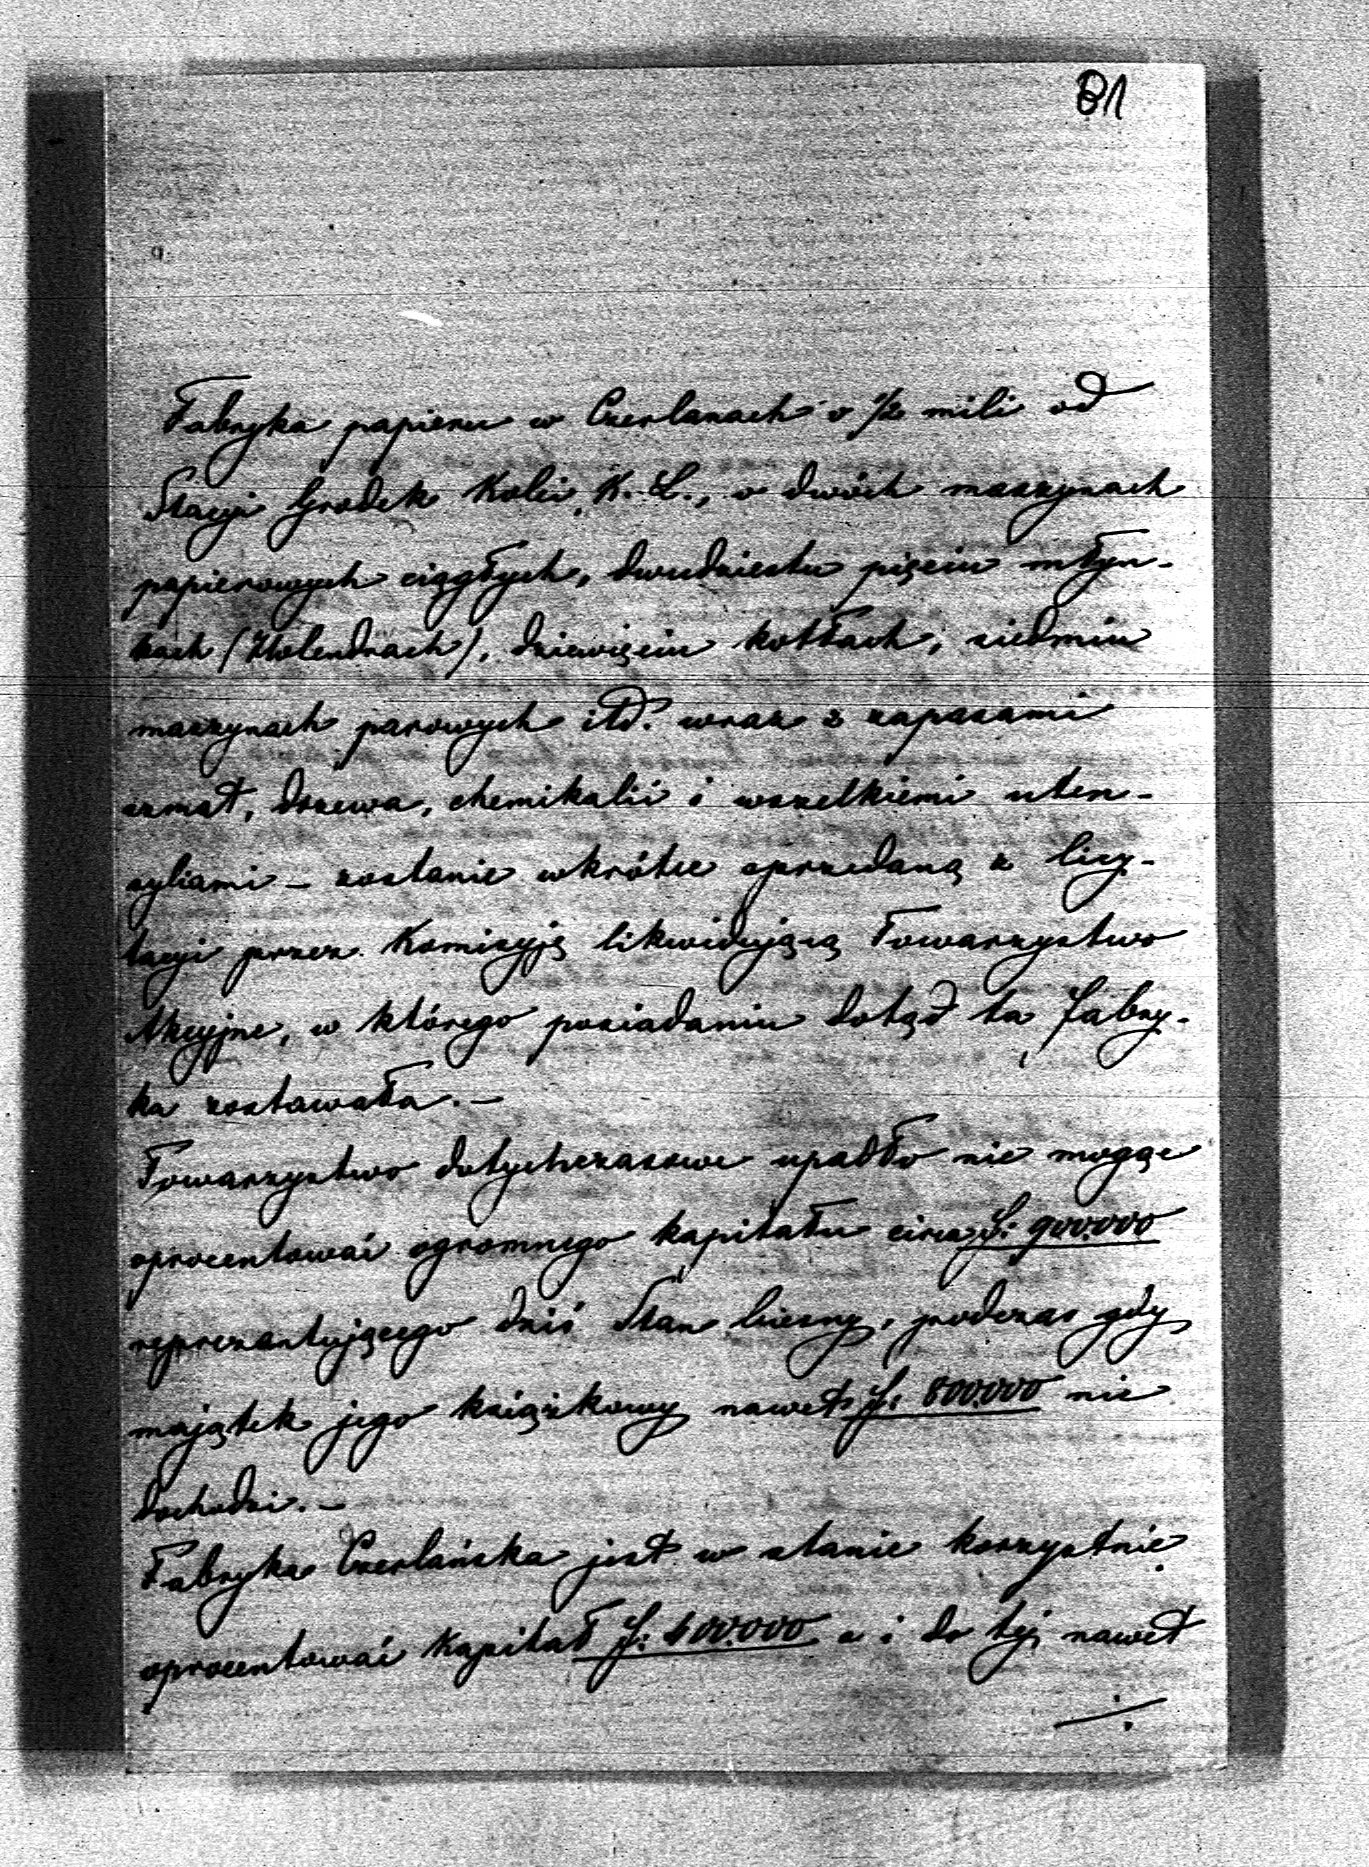 81
Fabryka papieru w Czerlanach o 1/2 mili od
Stacyi Grodek Kolei K. L., o dwóch maszynach
papierowych ciągłych, dwudziestu pięciu młyn-
kach (Holendrach), dziewięciu kotłach, siedmiu
maszynach parowych itd. wraz z zapasami
szmat, drzewa, chemikalii i wszelkiemi uten-
syliami – zostanie wkrótce sprzedaną z licy-
tacyi przez Komisyję likwidującą Towarzystwo
Akcyjne, w którego posiadaniu dotąd ta fabry-
ka zostawała. –
Towarzystwo dotychczasowe upadło nie mogąc
oprocentować ogromnego kapitału circa f: 900.000
reprezentującego dziś Stan bierny, podczas gdy
majątek jego książkowy nawet f: 800.000 nie
dochodzi. –
Fabryka Czerlańska jest w stanie korzystnie
oprocentować Kapitał f: 400.000 a i do tej nawet
./.